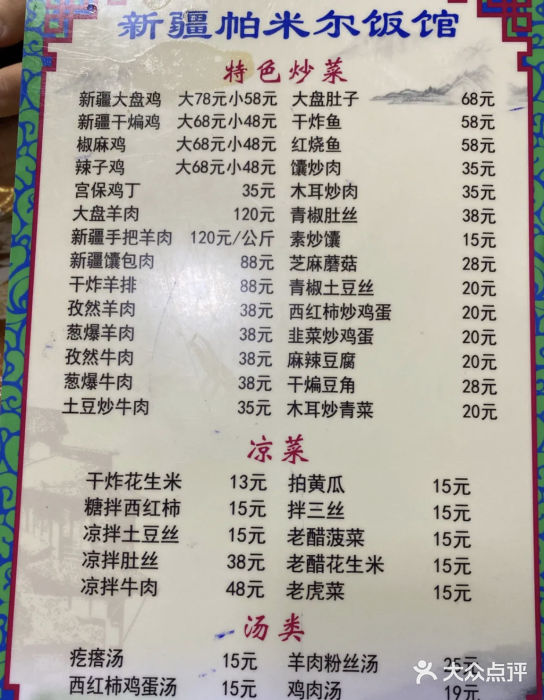 新疆帕米尔饭馆
特色炒菜
新疆大盘鸡 大78元小58元 大盘肚子 68元
新疆干煸鸡 大68元小48元 干炸鱼 58元
椒麻鸡 大68元小48元 红烧鱼 58元
辣子鸡 大68元小48元 馕炒肉 35元
宫保鸡丁 35元 木耳炒肉 35元
大盘羊肉 120元 青椒肚丝 38元
新疆手把羊肉 120元/公斤 素炒馕 15元
新疆馕包肉 88元 芝麻蘑菇 28元
干炸羊排 88元 青椒土豆丝 20元
孜然羊肉 38元 西红柿炒鸡蛋 20元
葱爆羊肉 38元 韭菜炒鸡蛋 20元
孜然牛肉 38元 麻辣豆腐 20元
葱爆牛肉 38元 干煸豆角 28元
土豆炒牛肉 35元 木耳炒青菜 20元
凉菜
干炸花生米 13元 拍黄瓜 15元
糖拌西红柿 15元 拌三丝 15元
凉拌土豆丝 15元 老醋菠菜 15元
凉拌肚丝 38元 老醋花生米 15元
凉拌牛肉 48元 老虎菜 15元
汤类
疙瘩汤 15元 羊肉粉丝汤 25元
西红柿鸡蛋汤 15元 鸡肉汤 19元
大众点评